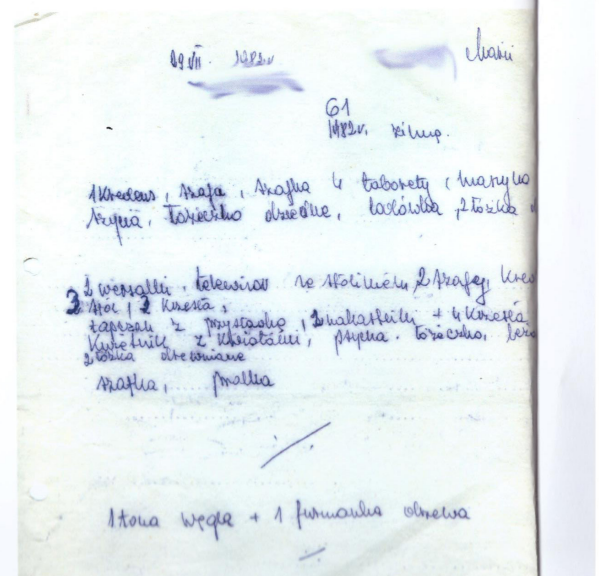 29 VII. 1982r
Marii
61
1982r. zimą.
1 kredens, szafa, szafka 4 taborety, maszyna
szycia, łóżeczko dziecinne, lodówka, 2 łóżka
2 wersalki, telewizor ze stolikiem, 2 szafy, kre
3 stół, 2 krzesła,
tapczan z przystawką, 2 nakastliki + 4 krzesła
kwietnik z kwiatami, łóżeczko,
2 łóżka drewniane
szafka, pralka
1 tona węgla + 1 furmanka drzewa